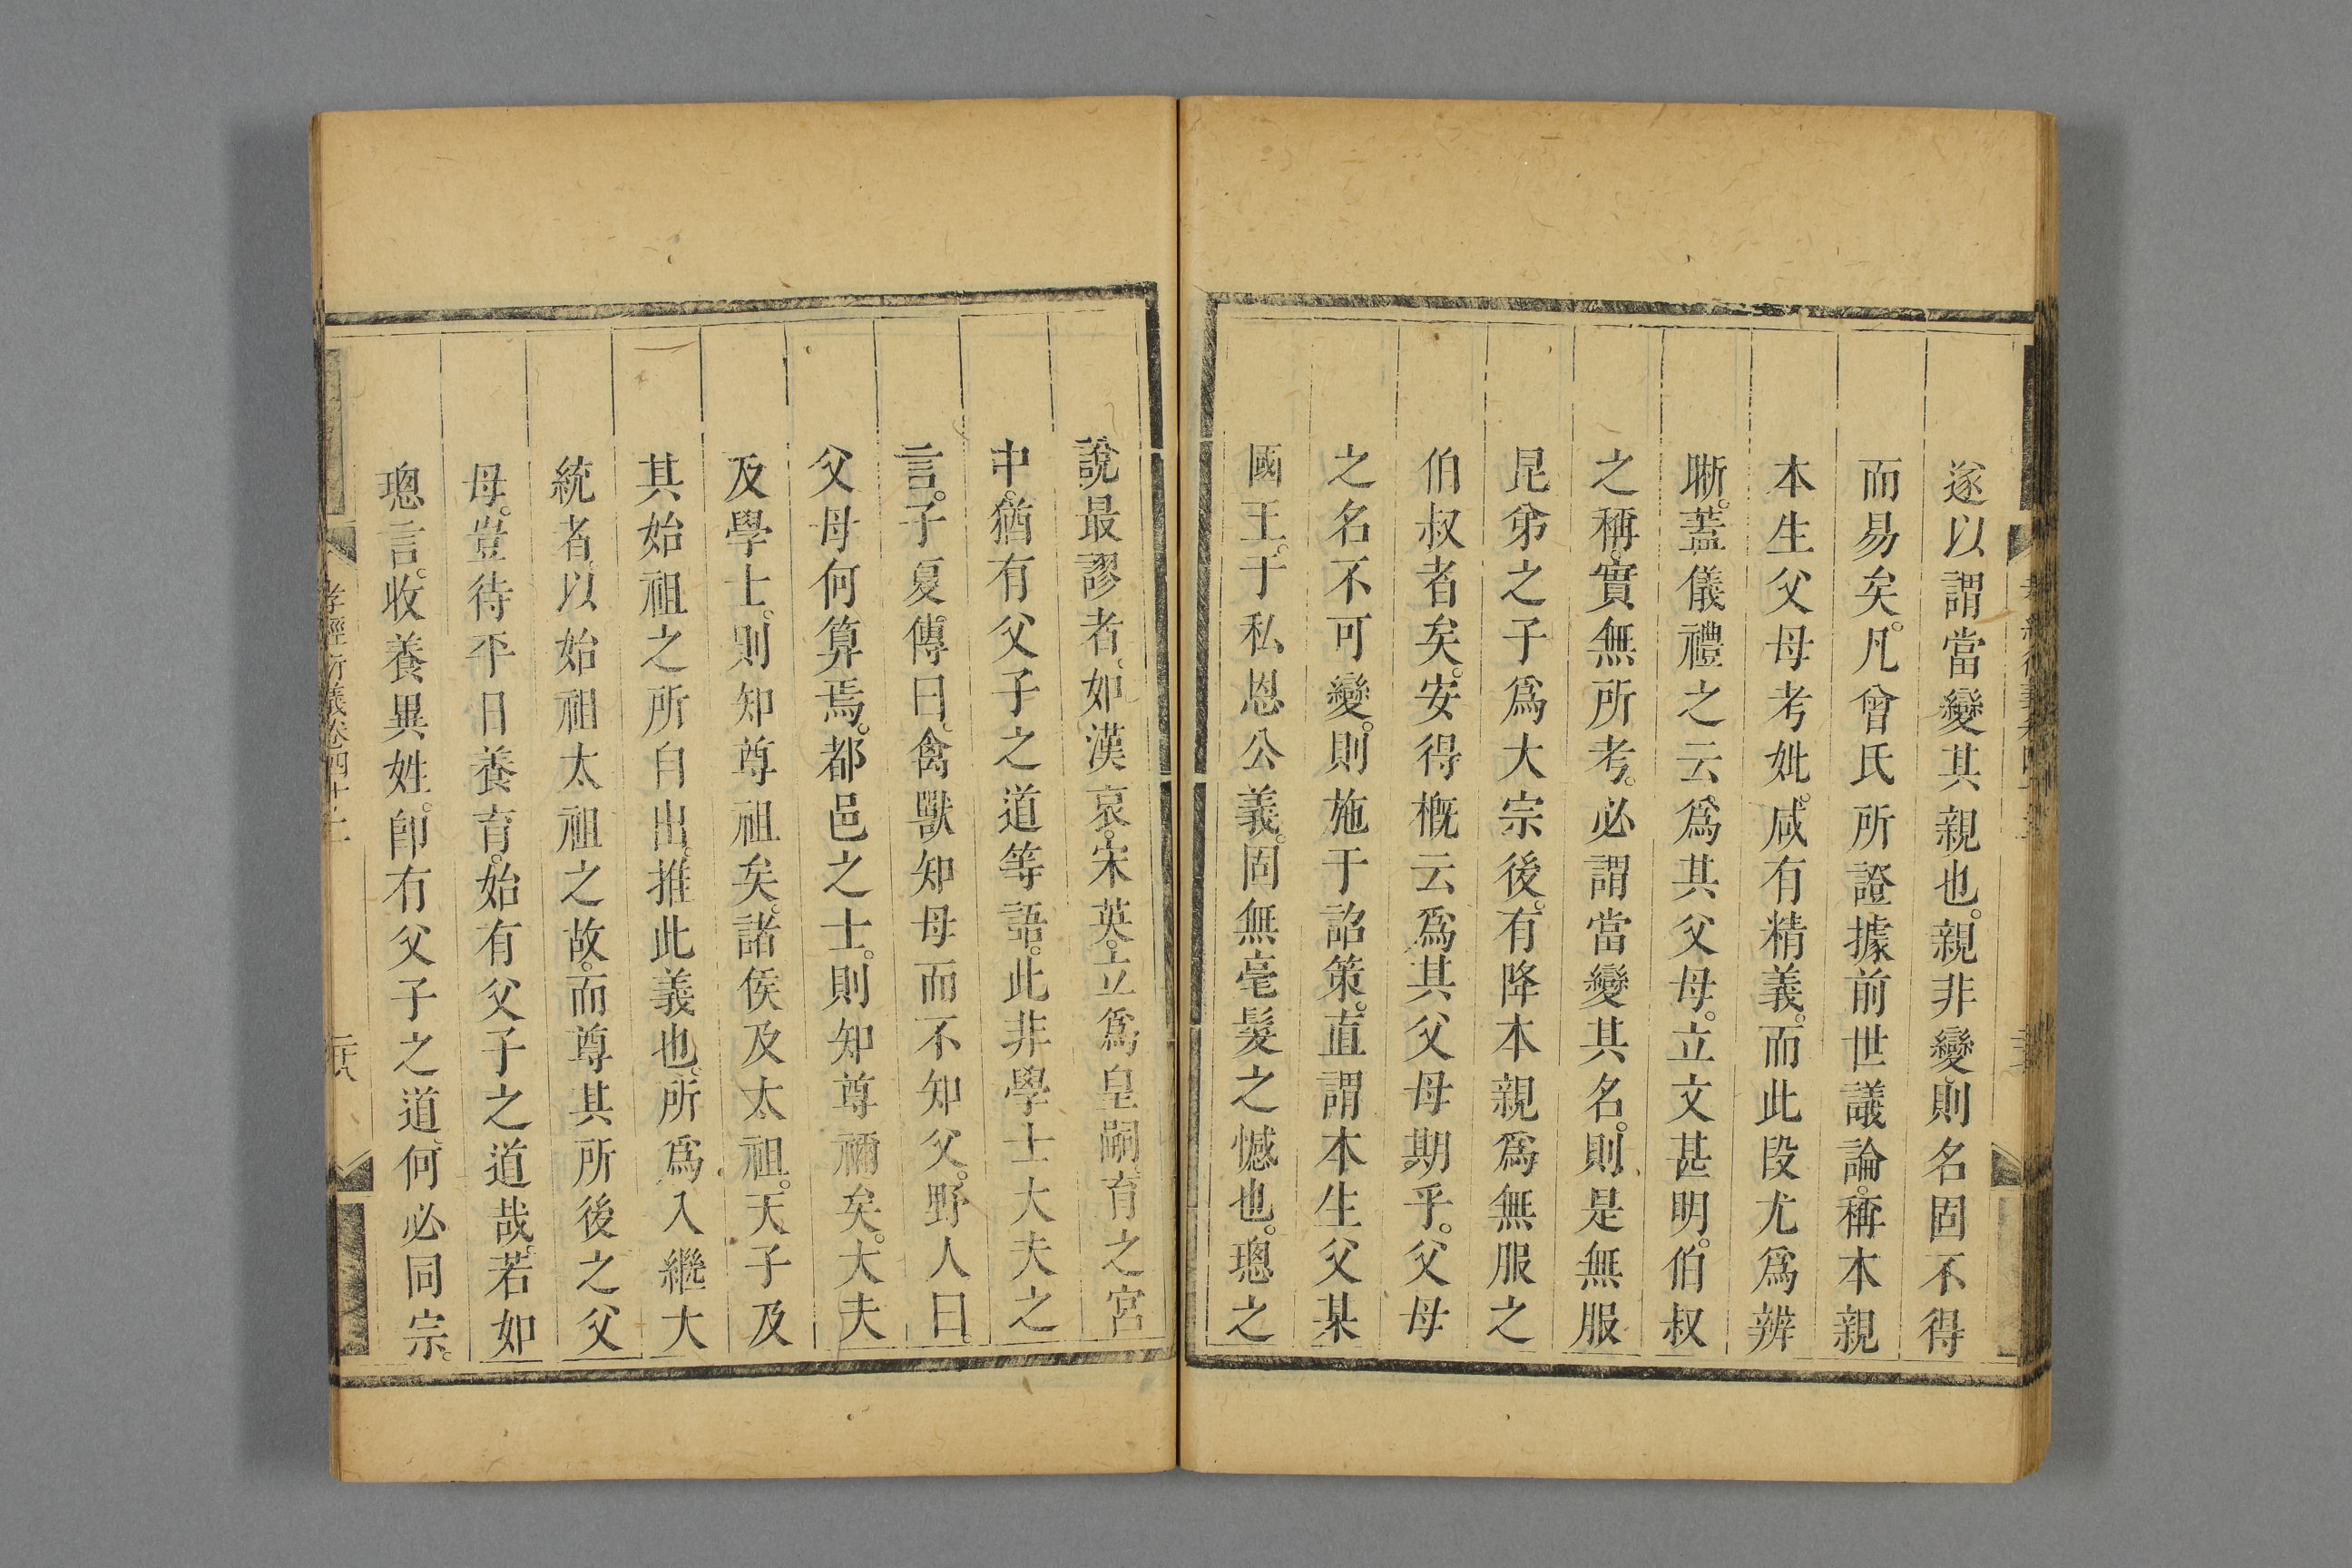 遂以謂當變其親也。親非變、則名固不得
而易矣。凡曾氏所證據前世議論。稱本親
本生父母考妣。咸有精義。而此段尤爲辨
晰。蓋儀禮之云。爲其父母。立文甚明。伯叔
之稱。實無所考。必謂當變其名。則是無服
昆弟之子爲大宗後。有降本親爲無服之
伯叔者矣。安得概云爲其父母期乎。父母
之名不可變。則施于詔策。直謂本生父某
國王。于私恩公義。固無毫髮之憾也。璁之
說最謬者。如漢哀。宋英。立爲皇嗣、育之宮
中。猶有父子之道等語。此非學士大夫之
言。子夏傳曰。禽獸知母而不知父。野人曰。
父母何算焉。都邑之士。則知尊禰矣。大夫
及學士。則知尊祖矣。諸侯及太祖。天子及
其始祖之所自出。推此義也。所爲入繼大
統者。以始祖太祖之故。而尊其所後之父
母。豈待平日養育。始有父子之道哉。若如
璁言。收養異姓。卽有父子之道、何必同宗。
孝經衍義卷四十二